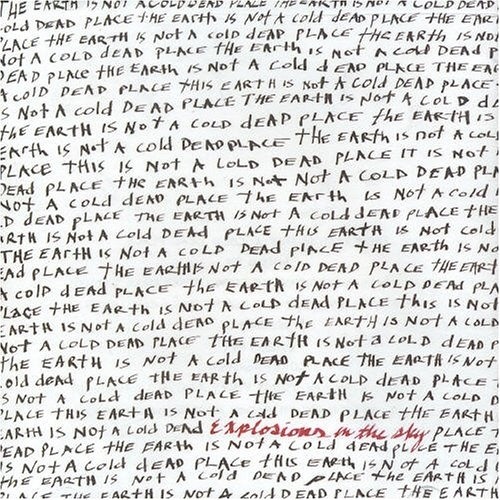 THE EARTH IS NOT A COLD DEAD PLACE THE EARTH IS NOT A COLD DEAD
OLD DEAD PLACE tHE EARTH IS NOT A COLD DEAD PLACE THE EAR
LACE tHE EARTH IS NOT A COLD DEAD PLACE tHE EARTH IS NO
NOT A COLD DEAD PLACE THE EARTH IS NOT A COLD DEAD P
DEAD PLACE tHE EARTH IS NOT A COLD dEAD PLACE THE EA
A COLD DEAD PLACE tHIS EARTH IS NOT A COLD DEAD PLACE
S NOT A COLD DEAD PLACE THE EARTH IS NOT A COLD D
tHE EARTH IS NOT A COLD DEAD PLACE tHE EARTH IS
EARTH IS NOT A COLD DEAD PLACE THE EARTH IS NOT A COL
PLACE THIS IS NOT A COLD DEAD PLACE IT IS NOT
DEAD PLACE tHE EARTH IS NOT NOT A COLD DEAD PL
NOT A COLD DEAD PLACE THE EARTH IS NOT A COLD
D DEAD PLACE THE EARTH IS NOT A COLD DEAD PLACE tHE
RTH IS NOT A COLD DEAD PLACE THIS EARTH IS NOT COLD
THE EARTH IS NOT A COLD DEAD PLACE tHE EARTH IS NO
EAD PLACE THE EARTH IS NOT A COLD DEAD PLACE tHE EART
A COLD dEAD PLACE tHE EARTH IS NOT A COLD DEAD PLA
LACE tHE EARTH IS NOT A COLD DEAD PLACE tHIS IS NOT
EARTH IS NOT A COLD DEAD PLACE tHE EARTH IS NOT A COLD
NOT A COLD DEAD PLACE THE EARTH IS NOT A COLD DEAD P
THE EARTH IS NOT A COLD DEAD PLACE THE EARTH IS NOT
OLD DEAD PLACE THE EARTH IS NOT A COLD DEAD PLACE
S NOT A COLD DEAD PLACE THE EARTH IS NOT A COLD
PLACE THIS EARTH IS NOT A COLD DEAD PLACE tHE EARTH
EARTH IS NOT A COLD DEAD Explosions in the sky PLACE T
DEAD PLACE tHE EARTH IS NOT A COLD DEAD PLACE THE E
IS NOT A COLD DEAD PLACE THIS EARTH IS NOT A COLD
PLACE tHE EARTH IS NOT A COLD DEAD PLACE tHE EARTH IS